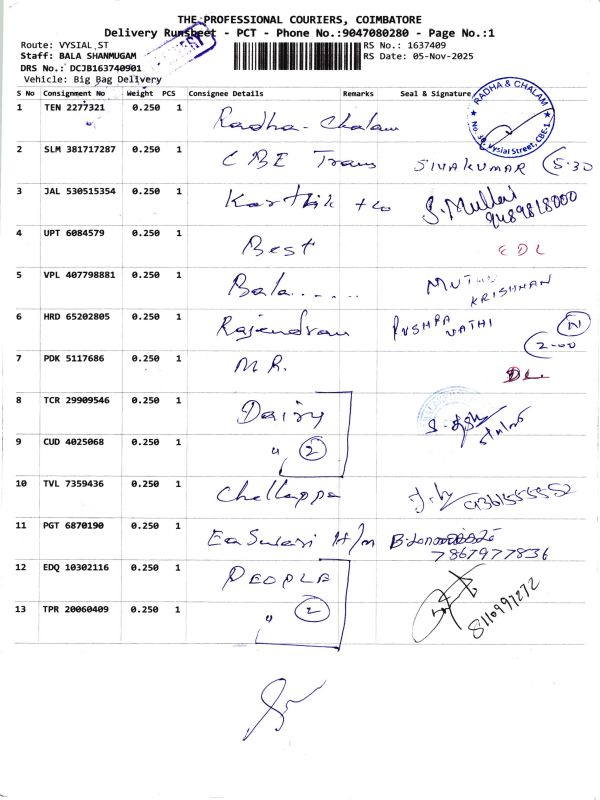 THE PROFESSIONAL COURIERS, COIMBATORE
Delivery Runsheet - PCT - Phone No.:9047080280 - Page No.:1
Route: VYSIAL ST
RS No.: 1637409
Staff: BALA SHANMUGAM
RS Date: 05-Nov-2025
DRS No.: DCJB163740901
Vehicle: Big Bag Delivery
S No Consignment No Weight PCS Consignee Details Remarks Seal & Signature
RADHA & CHALAM
No. 30, Vysial Street, CBE-1
1 TEN 2277321 0.250 1 Radha-Chalam
2 SLM 381717287 0.250 1 CBE Trans SIVAKUMAR 5.30
3 JAL 530515354 0.250 1 Karthik + co S. Mullai
9489818000
4 UPT 6084579 0.250 1 Best EDL
5 VPL 407798881 0.250 1 Bala...... MUTHU
KRISHNAN
6 HRD 65202805 0.250 1 Rajendran PUSHPA
VATHI N
2-00
7 PDK 5117686 0.250 1 M.R. DL
8 TCR 29909546 0.250 1 Dairy
9 CUD 4025068 0.250 1 " 2
10 TVL 7359436 0.250 1 Chellappa
11 PGT 6870190 0.250 1 Easwari H/m
7867977836
12 EDQ 10302116 0.250 1 PEOPLE
8110997272
13 TPR 20060409 0.250 1 " 2